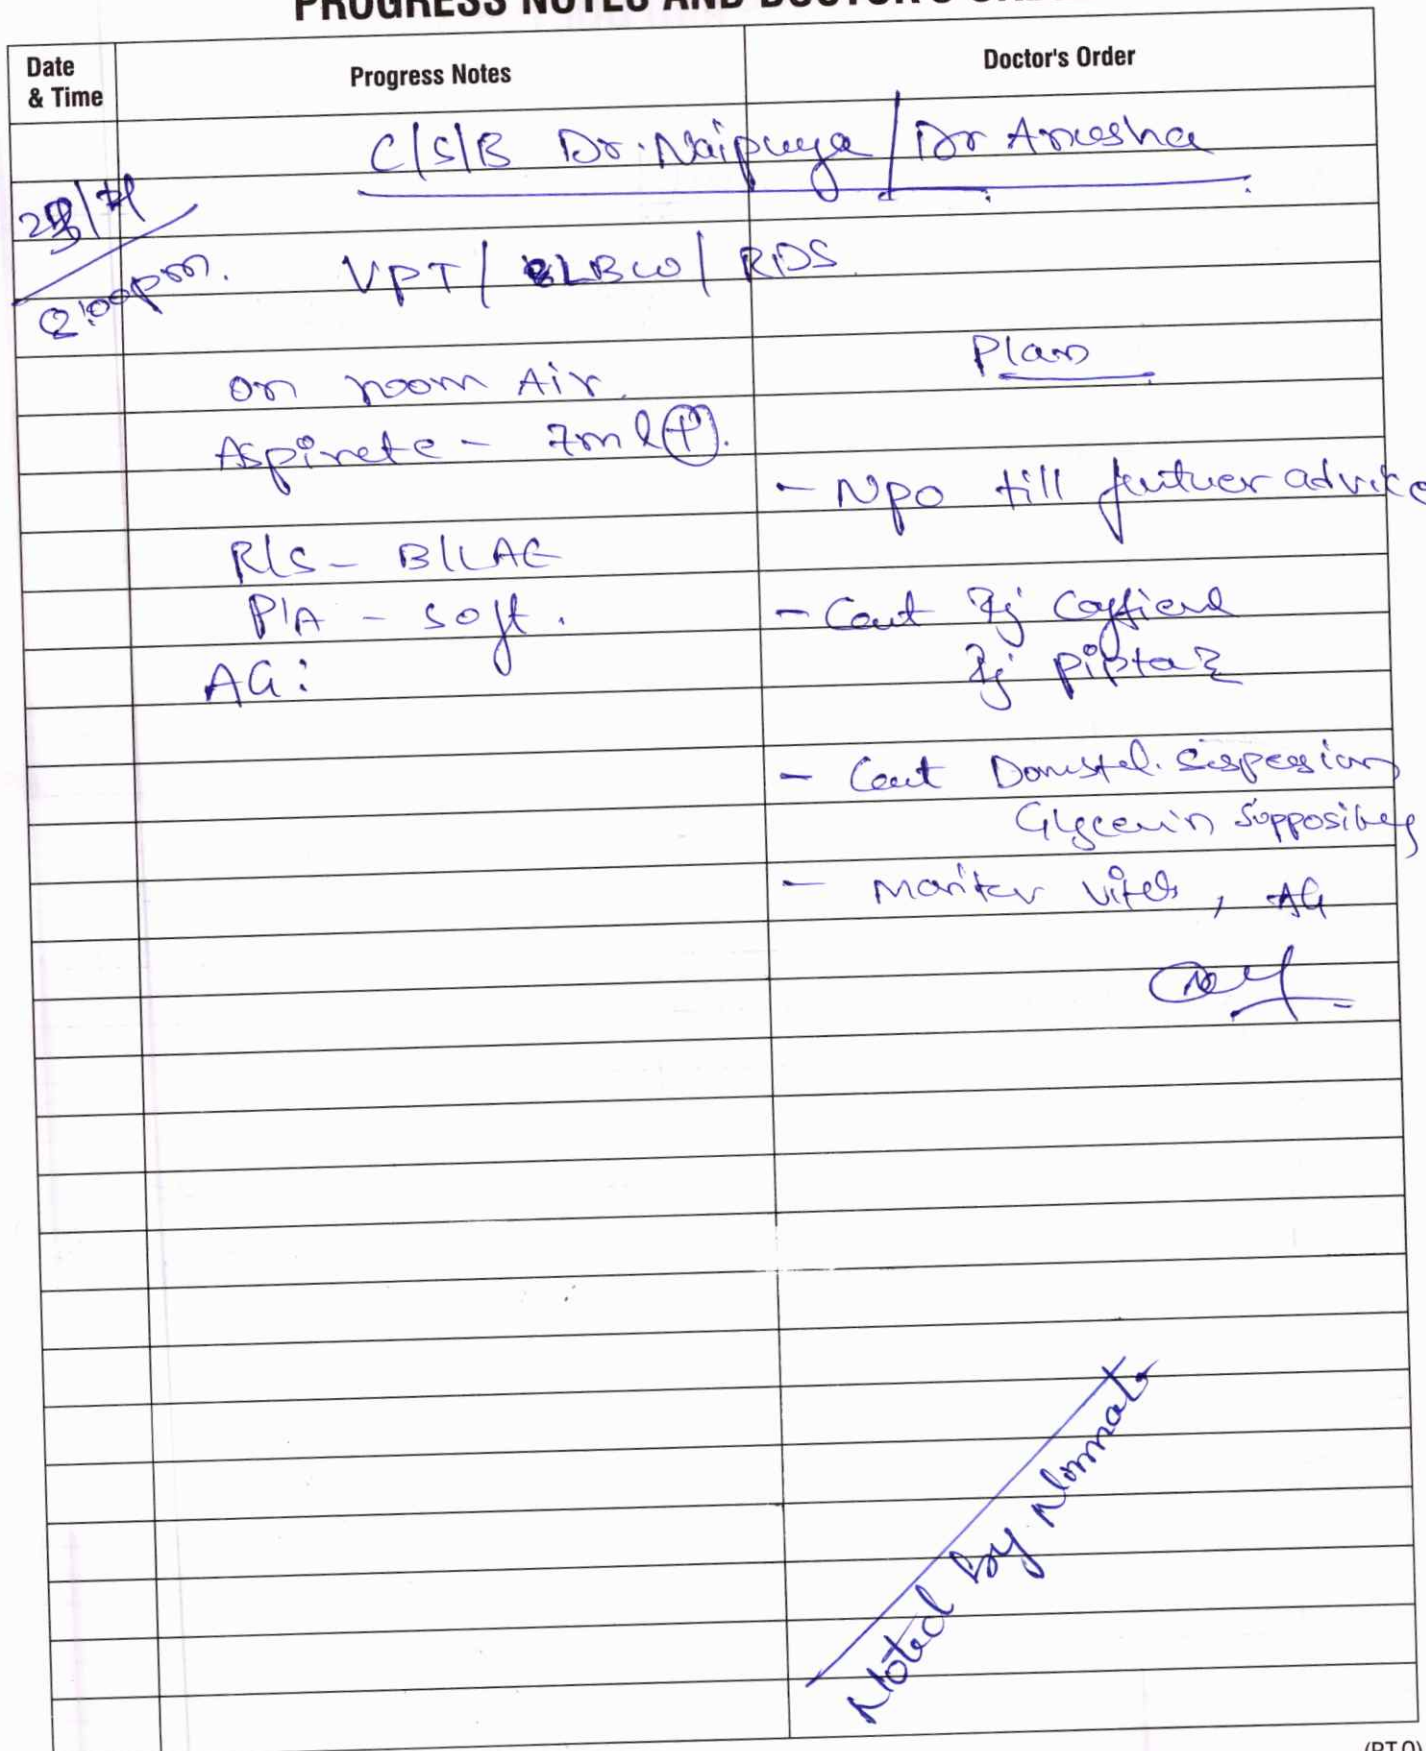 PROGRESS NOTES AND DOCTOR'S
Date & Time
Progress Notes
Doctor's Order
C/S/B Dr. Naipuya / Dr Anusha
2:00pm.
VPT / ELBW / RDS
on room Air.
Aspirete - 7ml (+).
R/S - B/L AE
P/A - soft.
AG:
Plan
- NPO till further advice
- Cont Inj Caffiene
Inj piptaz
- Cont Domstal. suspession
Glycerin Suppository
- Moniter vitels, AG
Noted by
(P.T.O)